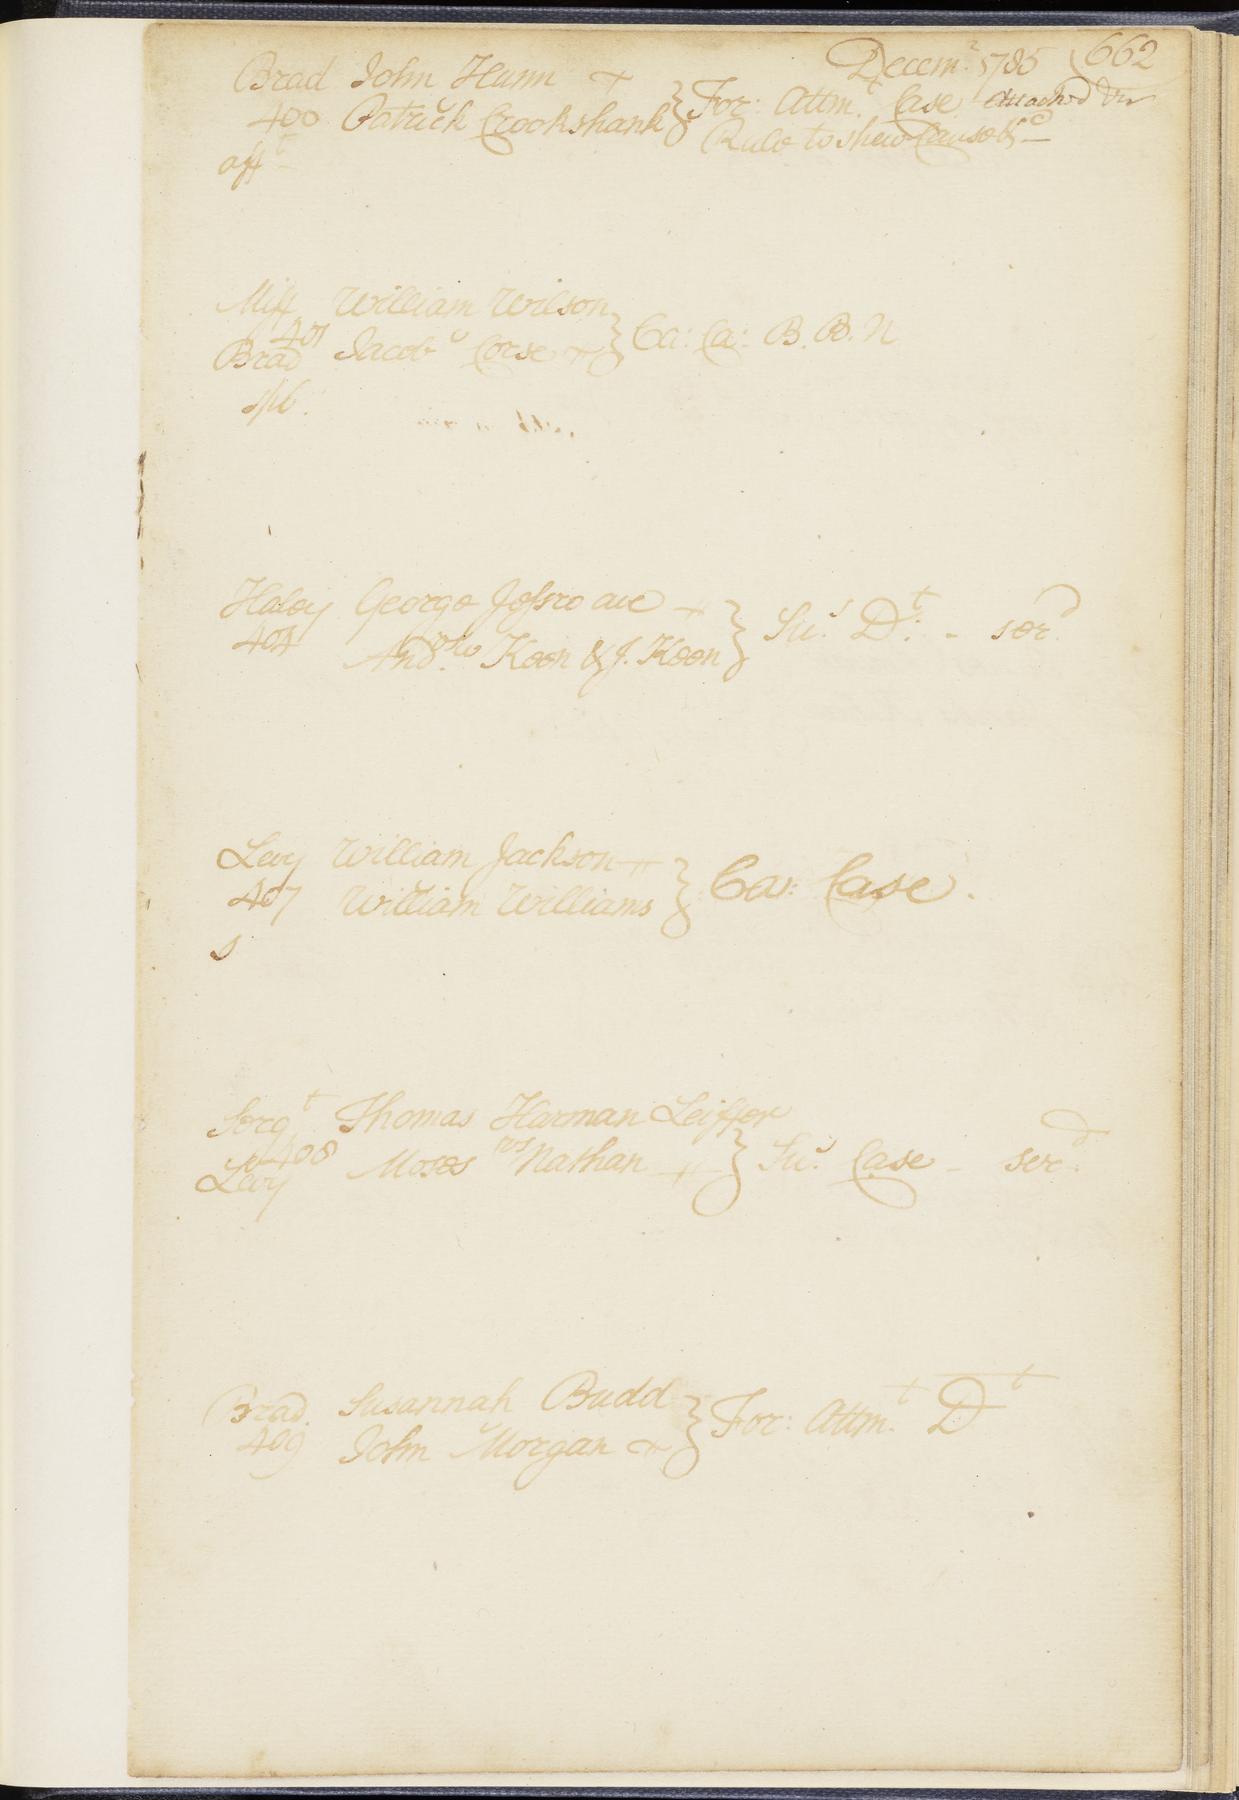 Decem.r 1785 662
Brad John Hunn + } For: Attm.t Case Attached &c
400 Patrick Crookshank Rule to shew Cause &c
aff.t
Miff William Wilson } Ca: Ca: B. B. N
401
Brad Jacob Corse +
spl.
Haley George + } Su.s D.t - ser.d
404 And.rew Koon & J. Koon
Levy William Jackson + } Ca: Case.
407 William Williams
s
Serg.t Thomas Harman Leiffer } Su.s Case - ser.d
408 vs
Levy Moses Nathan +
Brad. Susannah Budd } For: Attm.t D.t
409 John Morgan +